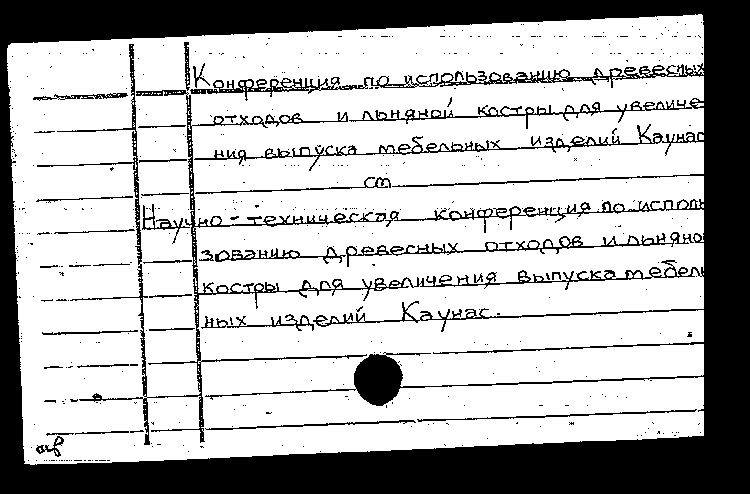 Конференция по использованию древесных
отходов и льняной костры для увеличе-
ния выпуска мебельных изделий Каунас
см
Научно-техническая конференция по исполь
зованию древесных отходов и льняно
костры для увеличения выпуска мебель
ных изделий Каунас.